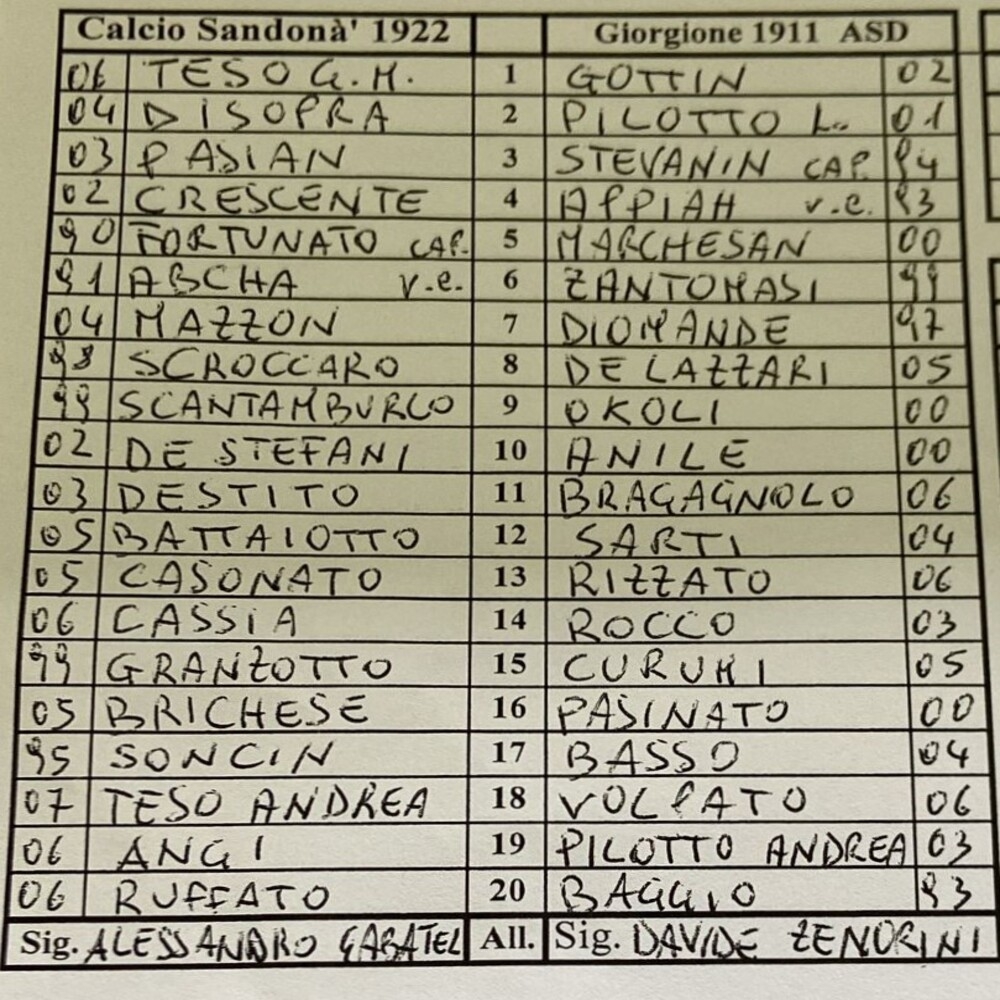 Calcio Sandonà' 1922 Giorgione 1911 ASD
06 TESO G.M. 1 GOTTIN 02
04 DISOPRA 2 PILOTTO L. 01
03 PASIAN 3 STEVANIN CAP. 94
02 CRESCENTE 4 APPIAH v.c. 93
90 FORTUNATO CAP. 5 MARCHESAN 00
91 ABCHA v.c. 6 ZANTOMASI 99
04 MAZZON 7 DIOMANDE 97
98 SCROCCARO 8 DE LAZZARI 05
99 SCANTAMBURLO 9 OKOLI 00
02 DE STEFANI 10 ANILE 00
03 DESTITO 11 BRAGAGNOLO 06
05 BATTAIOTTO 12 SARTI 04
05 CASONATO 13 RIZZATO 06
06 CASSIA 14 ROCCO 03
99 GRANZOTTO 15 CURUMI 05
05 BRICHESE 16 PASINATO 00
95 SONCIN 17 BASSO 04
07 TESO ANDREA 18 VOLPATO 06
06 ANGI 19 PILOTTO ANDREA 03
06 RUFFATO 20 BAGGIO 93
Sig. ALESSANDRO GABATEL All. Sig. DAVIDE ZENORINI